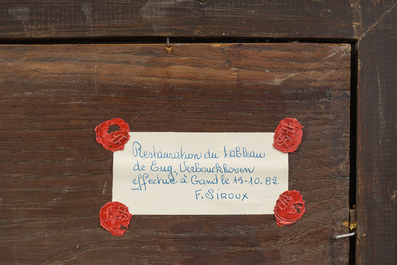 Restauration du tableau
de Eug. Verbouckhoven
effectué à Gand le 15-10.82.
F. SIROUX